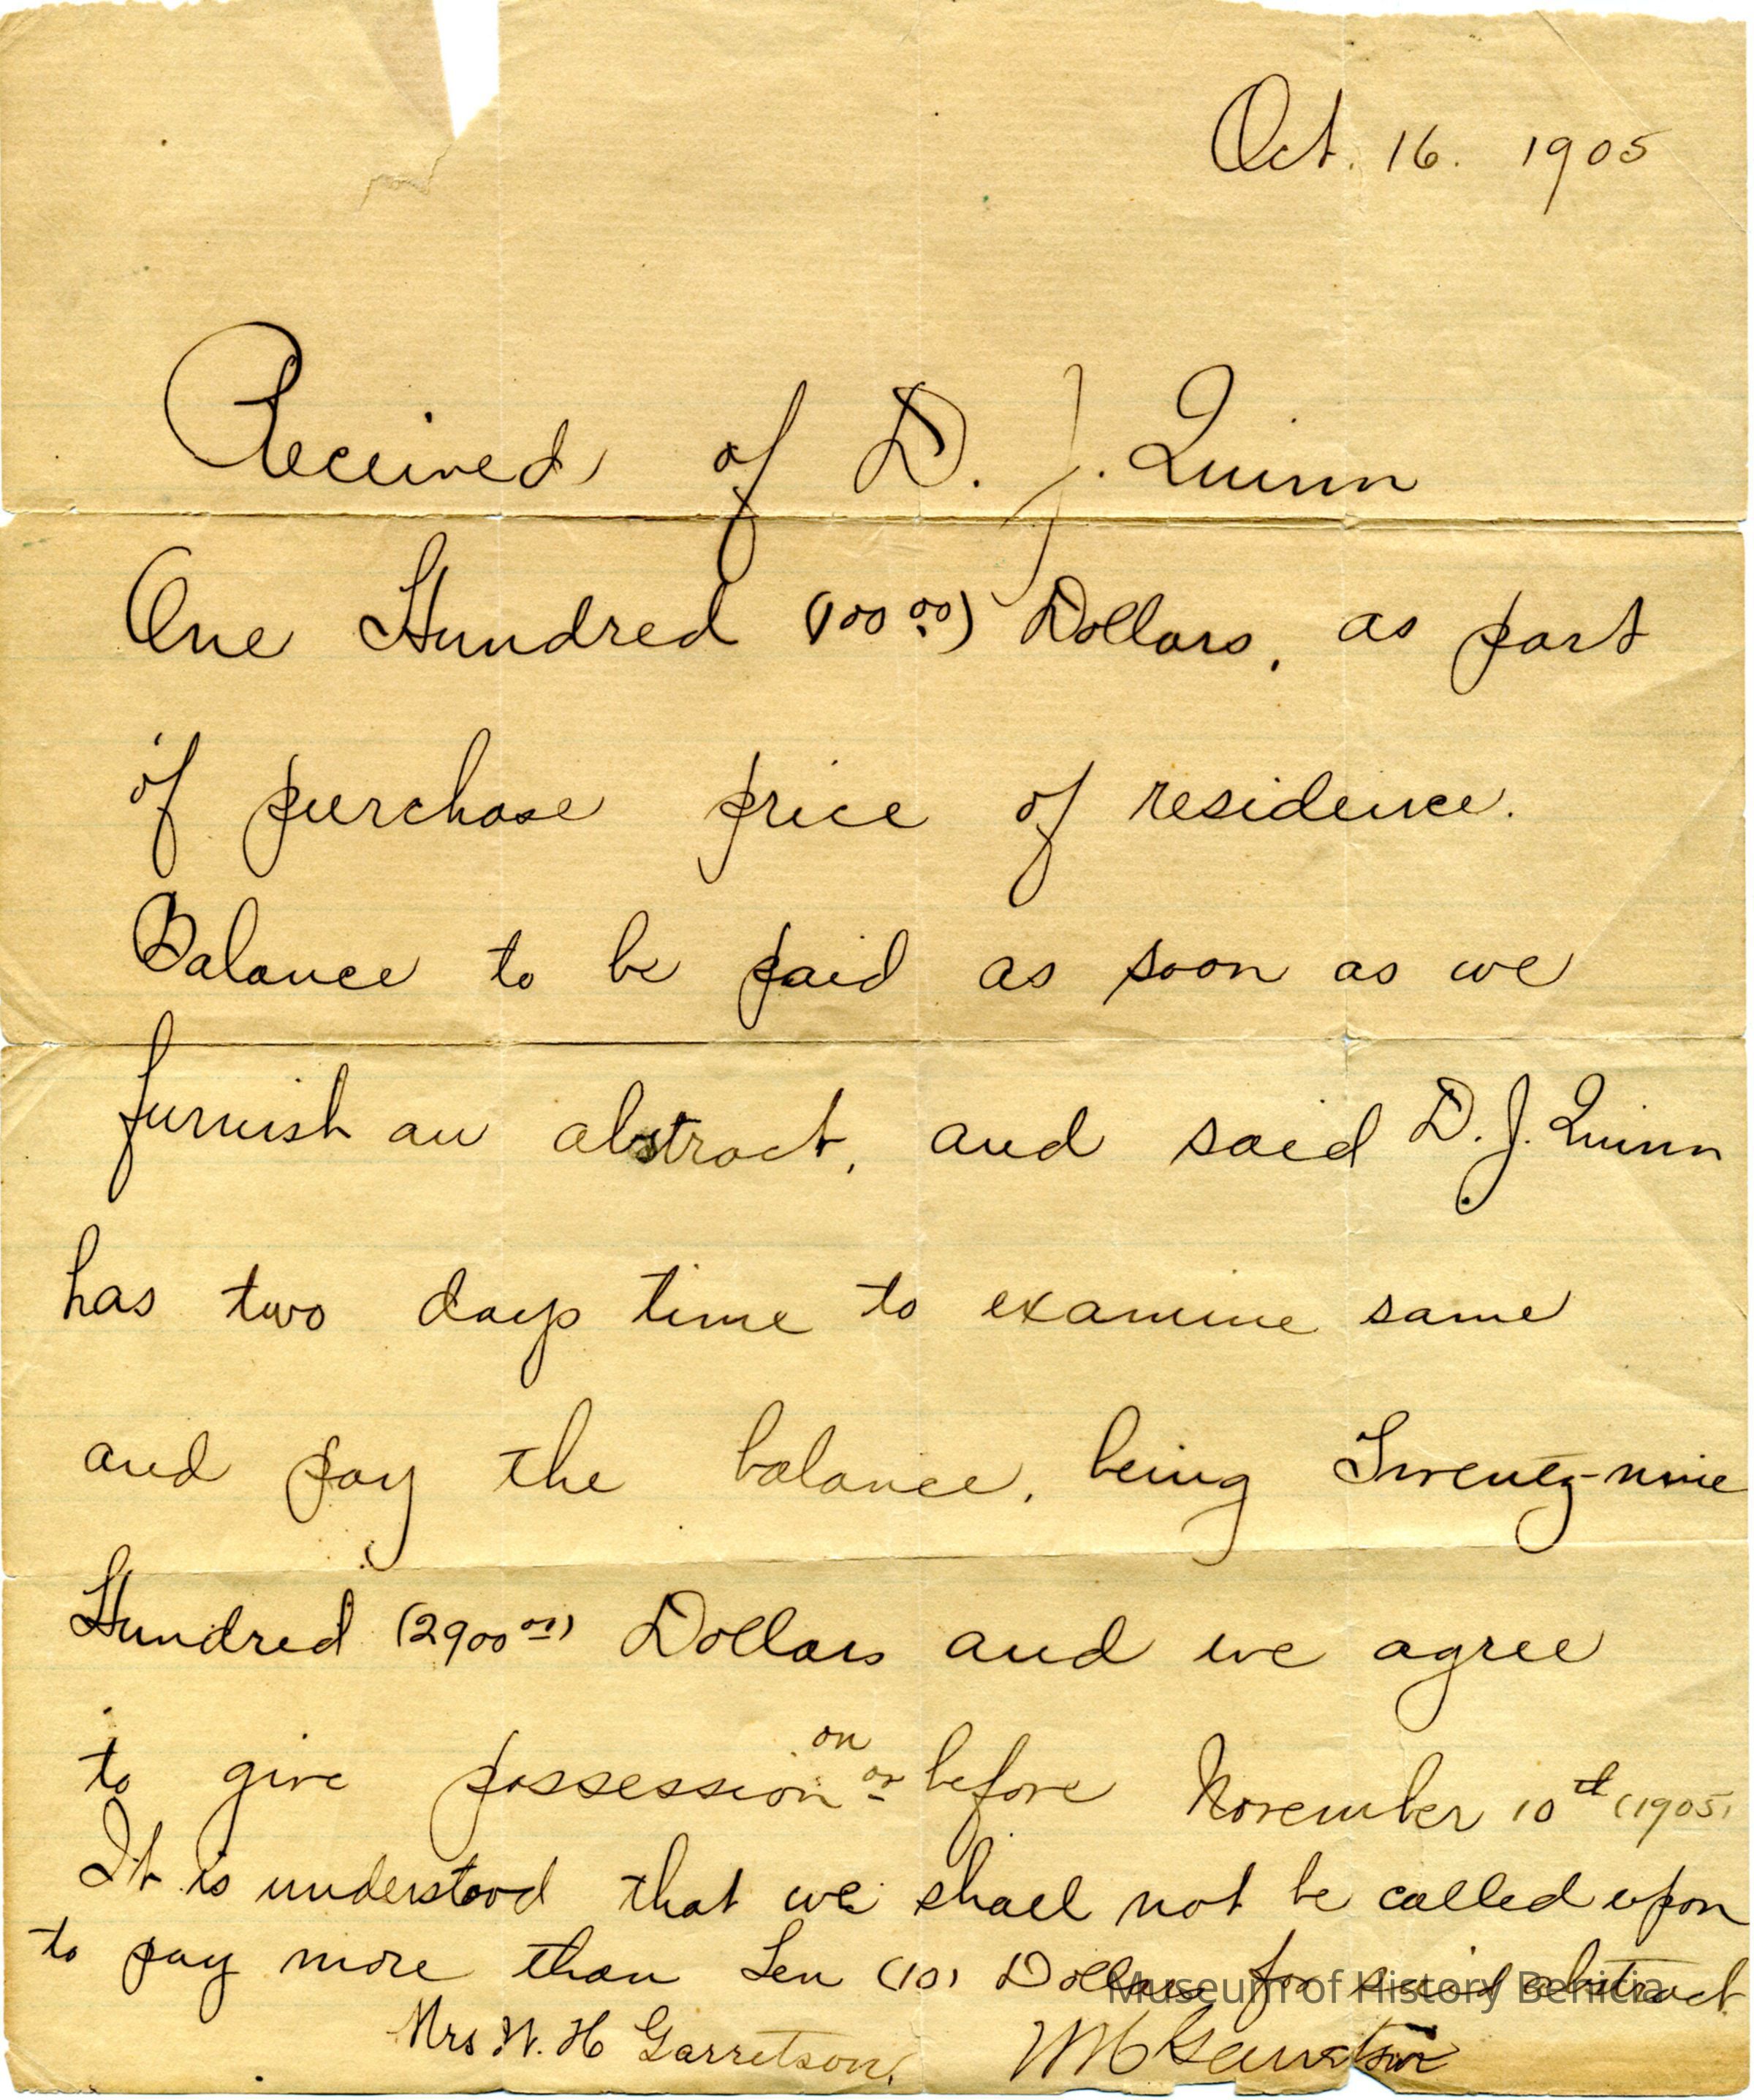 Oct. 16. 1905
Received of D. J. Quinn
One Hundred (100 00) Dollars, as part
of purchase price of residence.
Balance to be paid as soon as we
furnish an abstract, and said D. J. Quinn
has two days time to examine same
and pay the balance, being Twenty-nine
Hundred (2900 00) Dollars and we agree
to give possession on or before November 10th (1905)
It is understood that we shall not be called upon
to pay more than Ten (10) Dollars for said abstract
Museum of History Benicia
Mrs W. H Garretson. W H Garretson